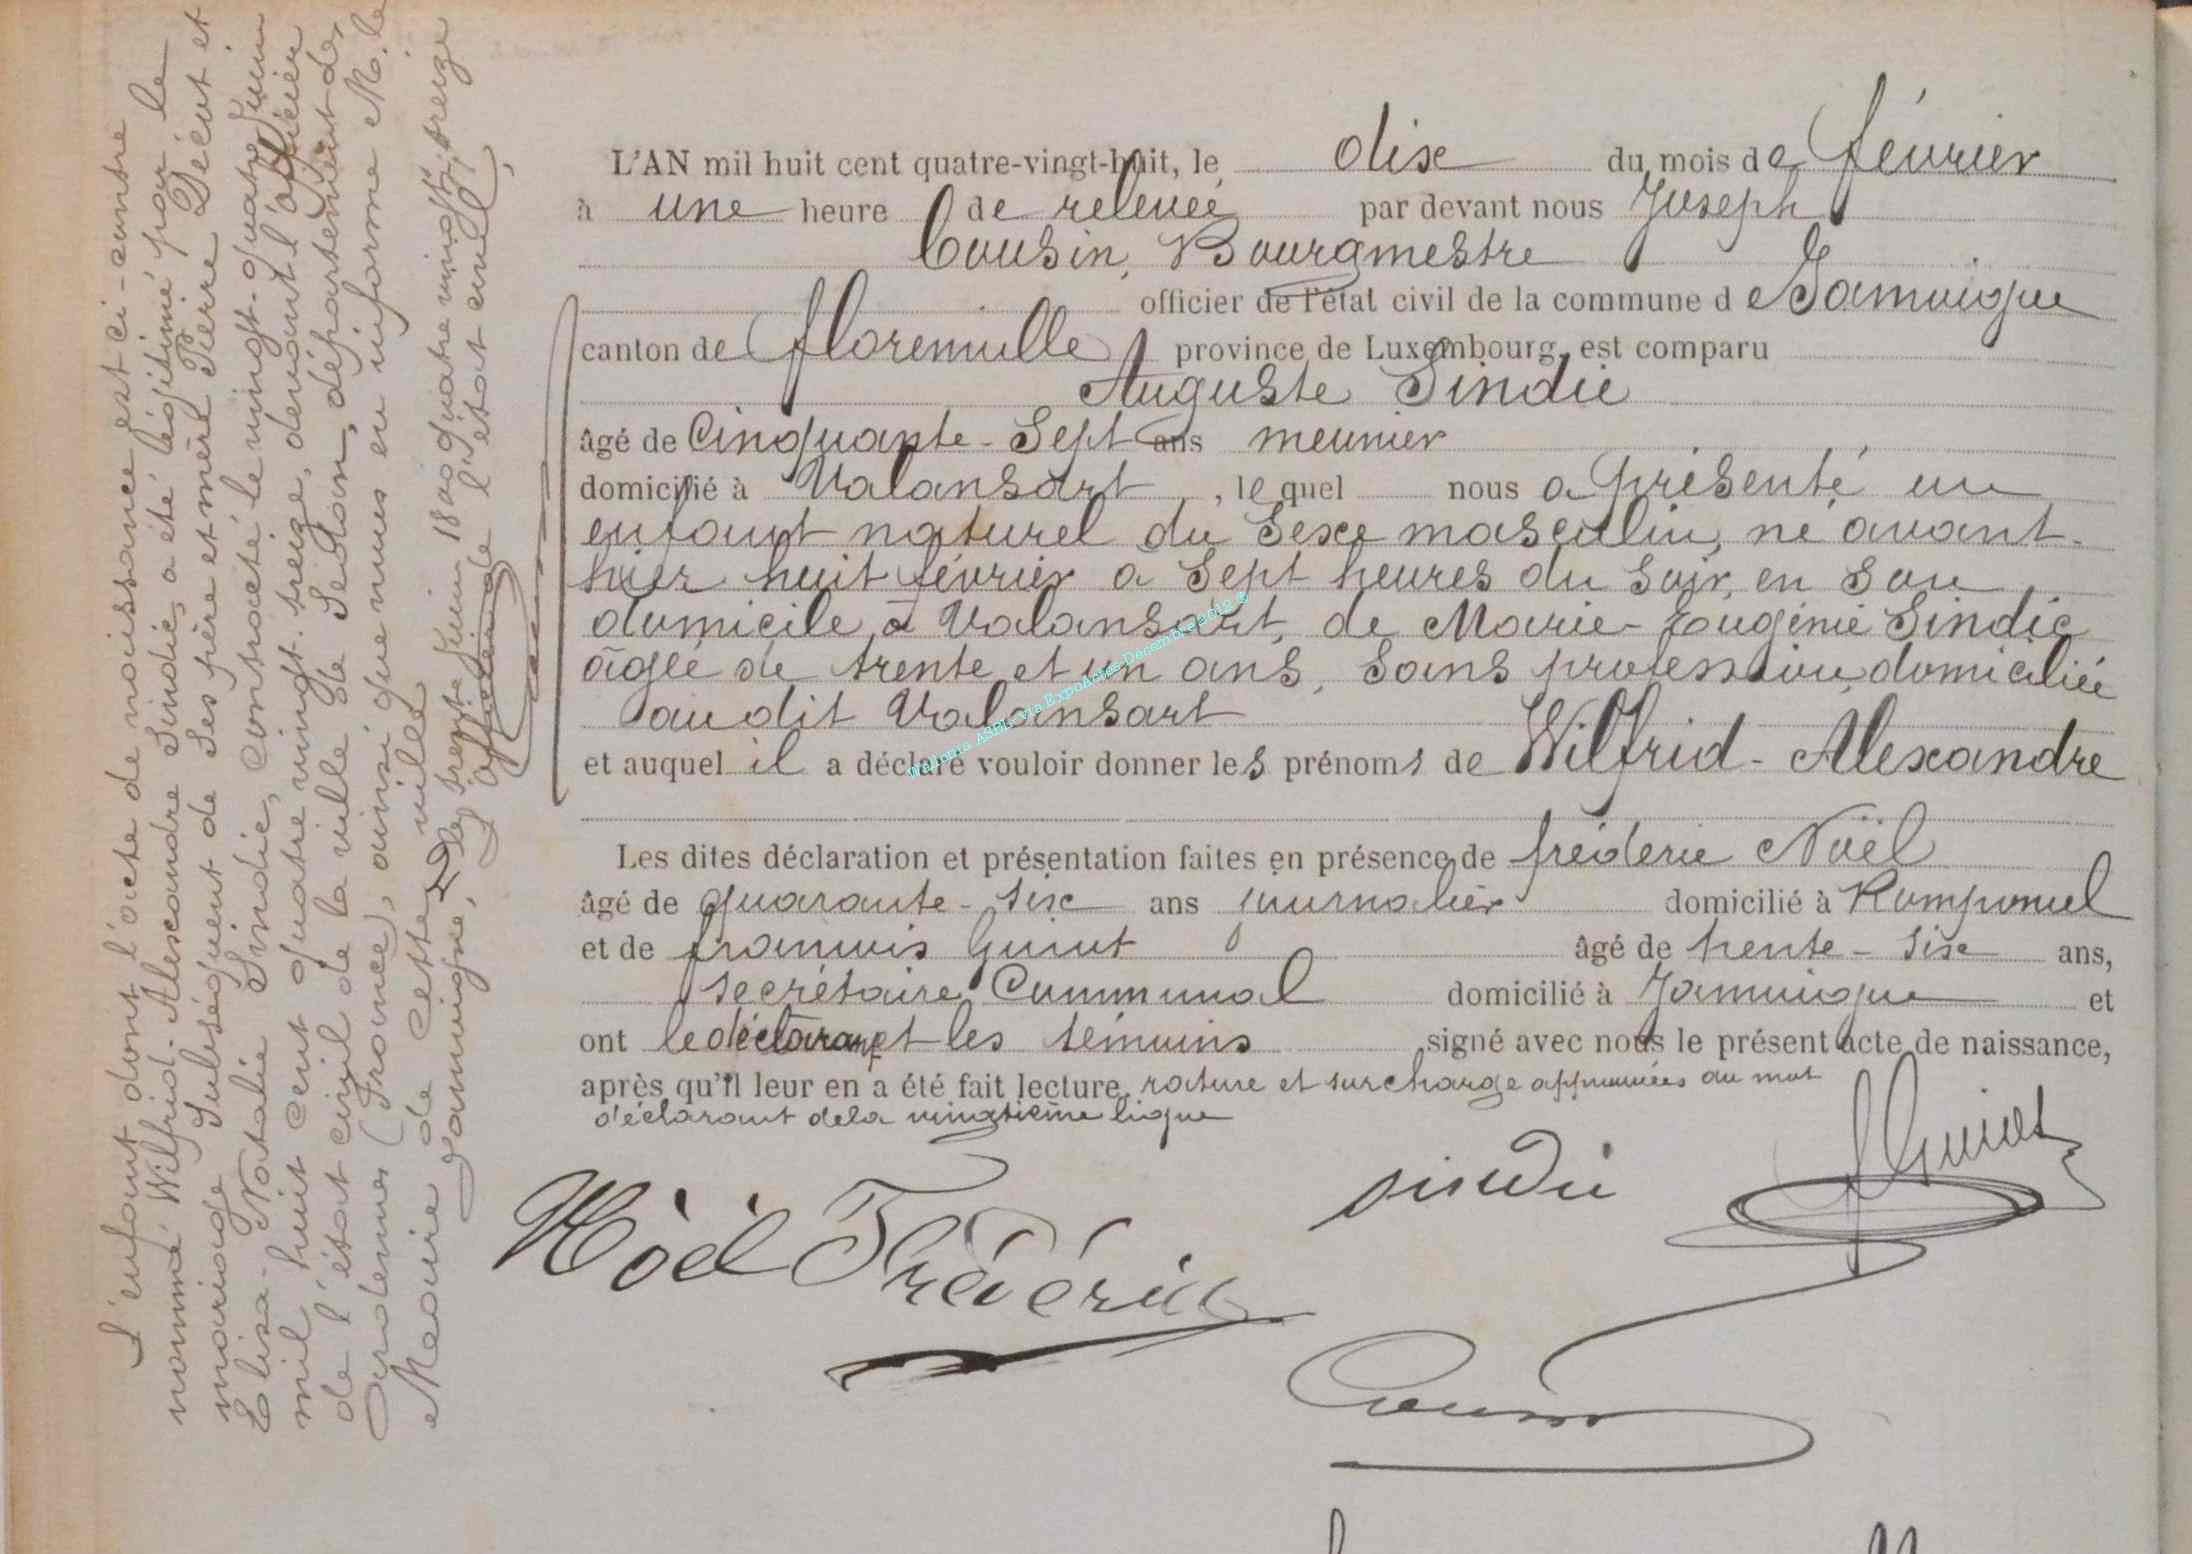 L'enfant dont l'acte de naissance est ci-contre
nommé Wilfrid-Alexandre Sindic, a été légitimé par le
mariage subséquent de ses père et mère Pierre Décut et
Elisa-Natalie Sindic, contracté le vingt-quatre Juin
mil huit cent quatre vingt-treize, devant l'officier
de l'état civil de la ville de Sedan, département des
Ardennes (France), ainsi que nous en informe M. le
Maire de cette ville
Jamoigne, le trente Juin 18 cent quatre vingt-treize
L'officier de l'état civil,
L'AN mil huit cent quatre-vingt-huit, le dix du mois de février
à une heure de relevée par devant nous Joseph
Cousin, Bourgmestre
officier de l'état civil de la commune de Jamoigne
canton de florenville province de Luxembourg, est comparu
Auguste Sindic
âgé de Cinquante-Sept ans meunier
domicilié à Valansart, lequel nous a présenté un
enfant naturel du Sexe masculin, né avant-
hier huit février a Sept heures du Soir, en Son
domicile, à Valansart, de Marie-Eugénie Sindic
âgée de trente et un ans, Sans profession, domiciliée
au dit Valansart
et auquel il a déclaré vouloir donner les prénoms de Wilfrid-Alexandre
Les dites déclaration et présentation faites en présence de fréderic Noël
âgé de quarante-six ans journalier domicilié à Romponcel
et de francois Guiot âgé de trente-six ans,
secrétaire Communal domicilié à Jamoigne et
ont le déclarant et les témoins signé avec nous le présent acte de naissance,
après qu'il leur en a été fait lecture, rature et surcharge approuvées au mot
déclarant de la vingtième ligne
Sindic
FGuiot
Nòël Frédéric
Cousin
Wallonia ASBL, via ExpoActes-Décembre 2012 ©